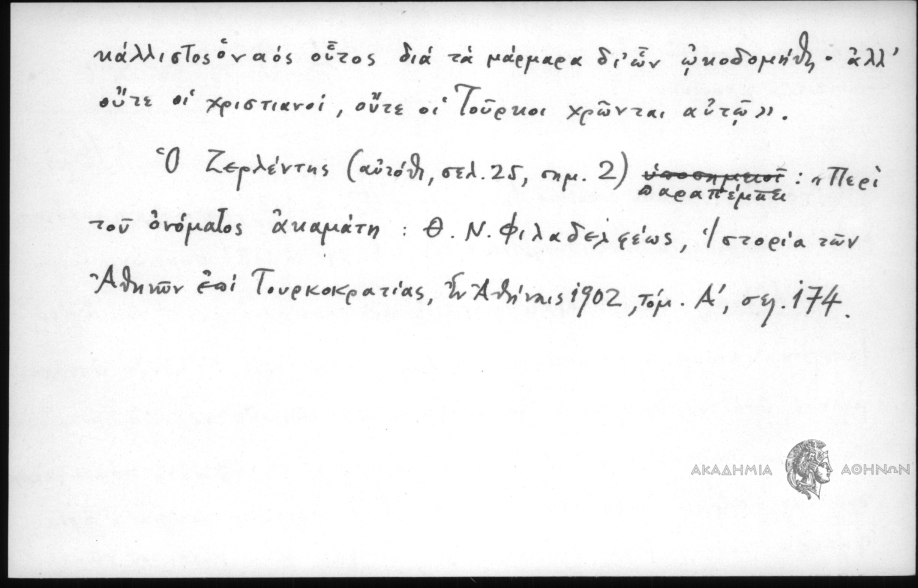 κάλλιστος ὁ ναὸς οὗτος διά τὰ μάρμαρα δι' ὧν ᾠκοδομήθη· ἀλλ'
οὔτε οἱ χριστιανοί, οὔτε οἱ Τοῦρκοι χρῶνται αὐτῷ».
Ὁ Ζερλέντης (αὐτόθι, σελ. 25, σημ. 2) ὑποσημειοῖ : «Περὶ
παραπέμπει
τοῦ ὀνόματος ἀκαμάτη : Θ. Ν. Φιλαδελφέως, Ἱστορία τῶν
Ἀθηνῶν ἐπί Τουρκοκρατίας, Ἐν Ἀθήναις 1902, τόμ. Α', σελ. 174.
ΑΚΑΔΗΜΙΑ ΑΘΗΝΩΝ